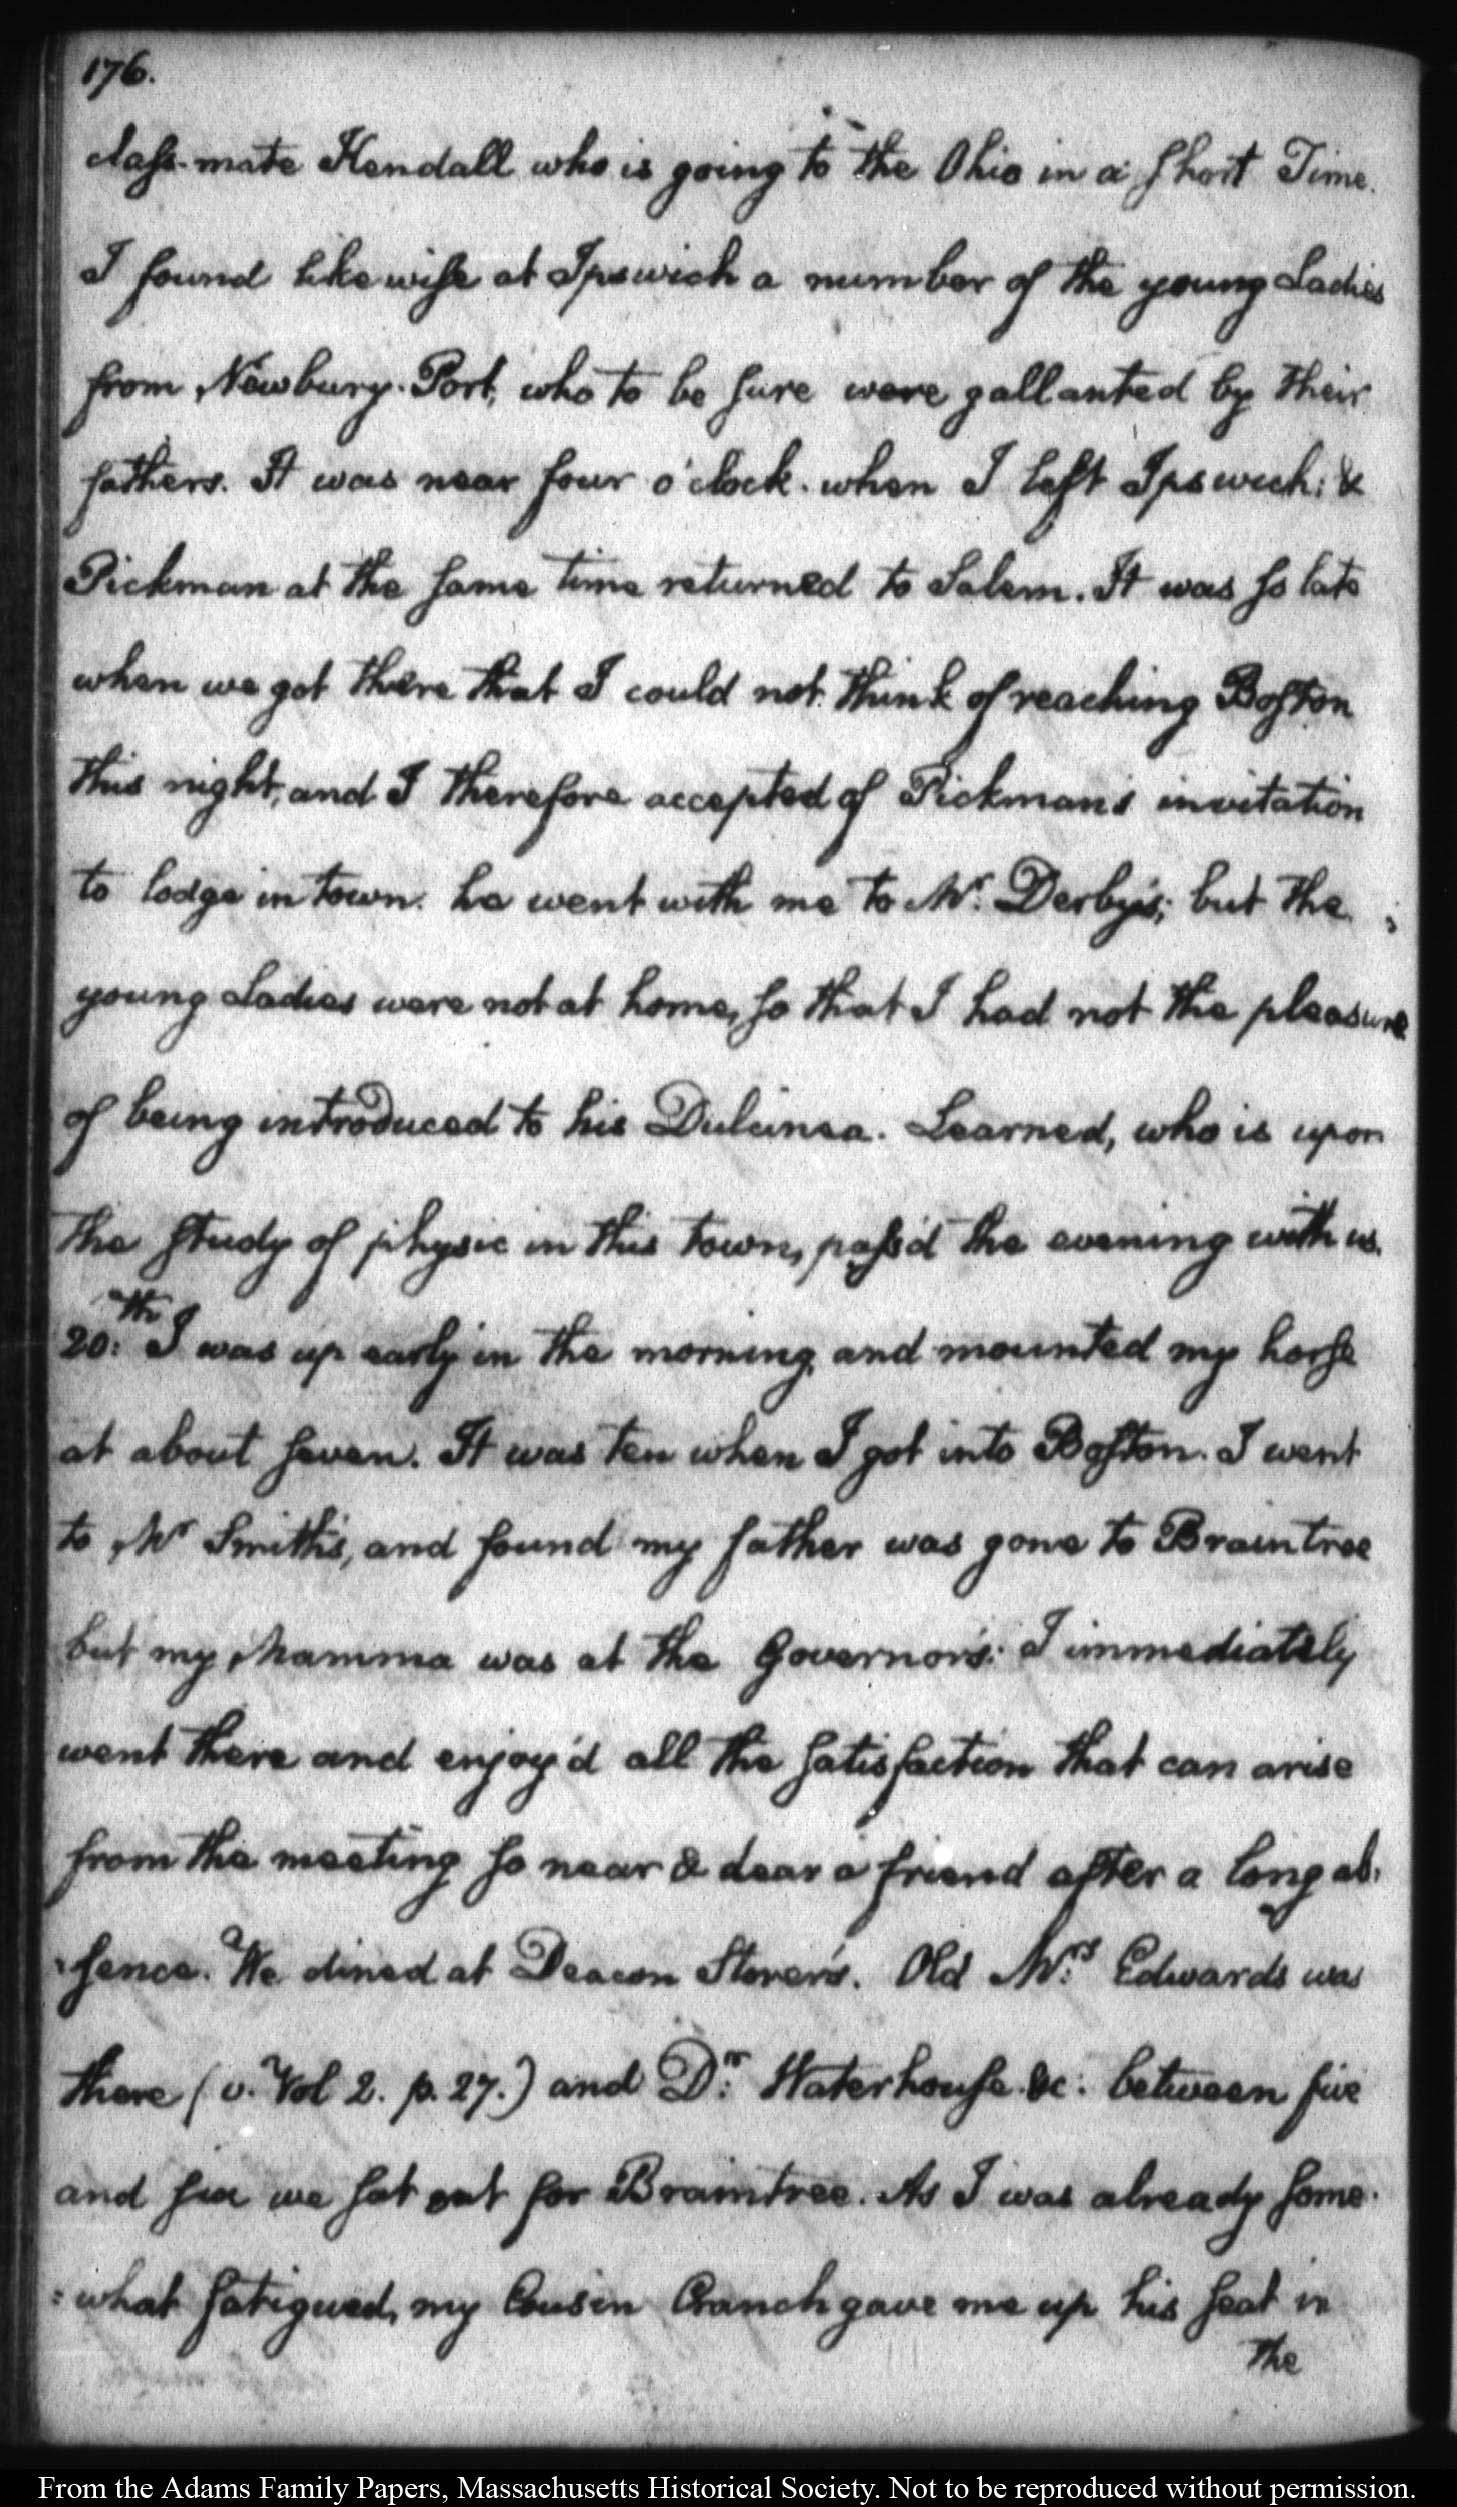 176.
class-mate Kendall who is going to the Ohio in a short Time.
I found likewise at Ipswich a number of the young Ladies
from Newbury-Port, who to be sure were gallanted by their
fathers. It was near four o'clock when I left Ipswich; &
Pickman at the same time returned to Salem. It was so late
when we got there that I could not think of reaching Boston
this night, and I therefore accepted of Pickman's invitation
to lodge in town. he went with me to Mr. Derby's; but the
young Ladies were not at home, so that I had not the pleasure
of being introduced to his Dulcinea. Learned, who is upon
the study of physic in this town, pass'd the evening with us.
20:th I was up early in the morning, and mounted my horse
at about seven. It was ten when I got into Boston. I went
to Mr Smith's, and found my father was gone to Braintree
but my Mamma was at the Governor's: I immediately
went there and enjoy'd all the satisfaction that can arise
from the meeting so near & dear a friend after a long ab-
-sence. We dined at Deacon Storer's. Old Mrs: Edwards was
there (v. Vol 2. p. 27.) and Dr: Waterhouse &c: between five
and six we sat out for Braintree. As I was already some-
-what fatigued, my Cousin Cranch gave me up his seat in
the
From the Adams Family Papers, Massachusetts Historical Society. Not to be reproduced without permission.